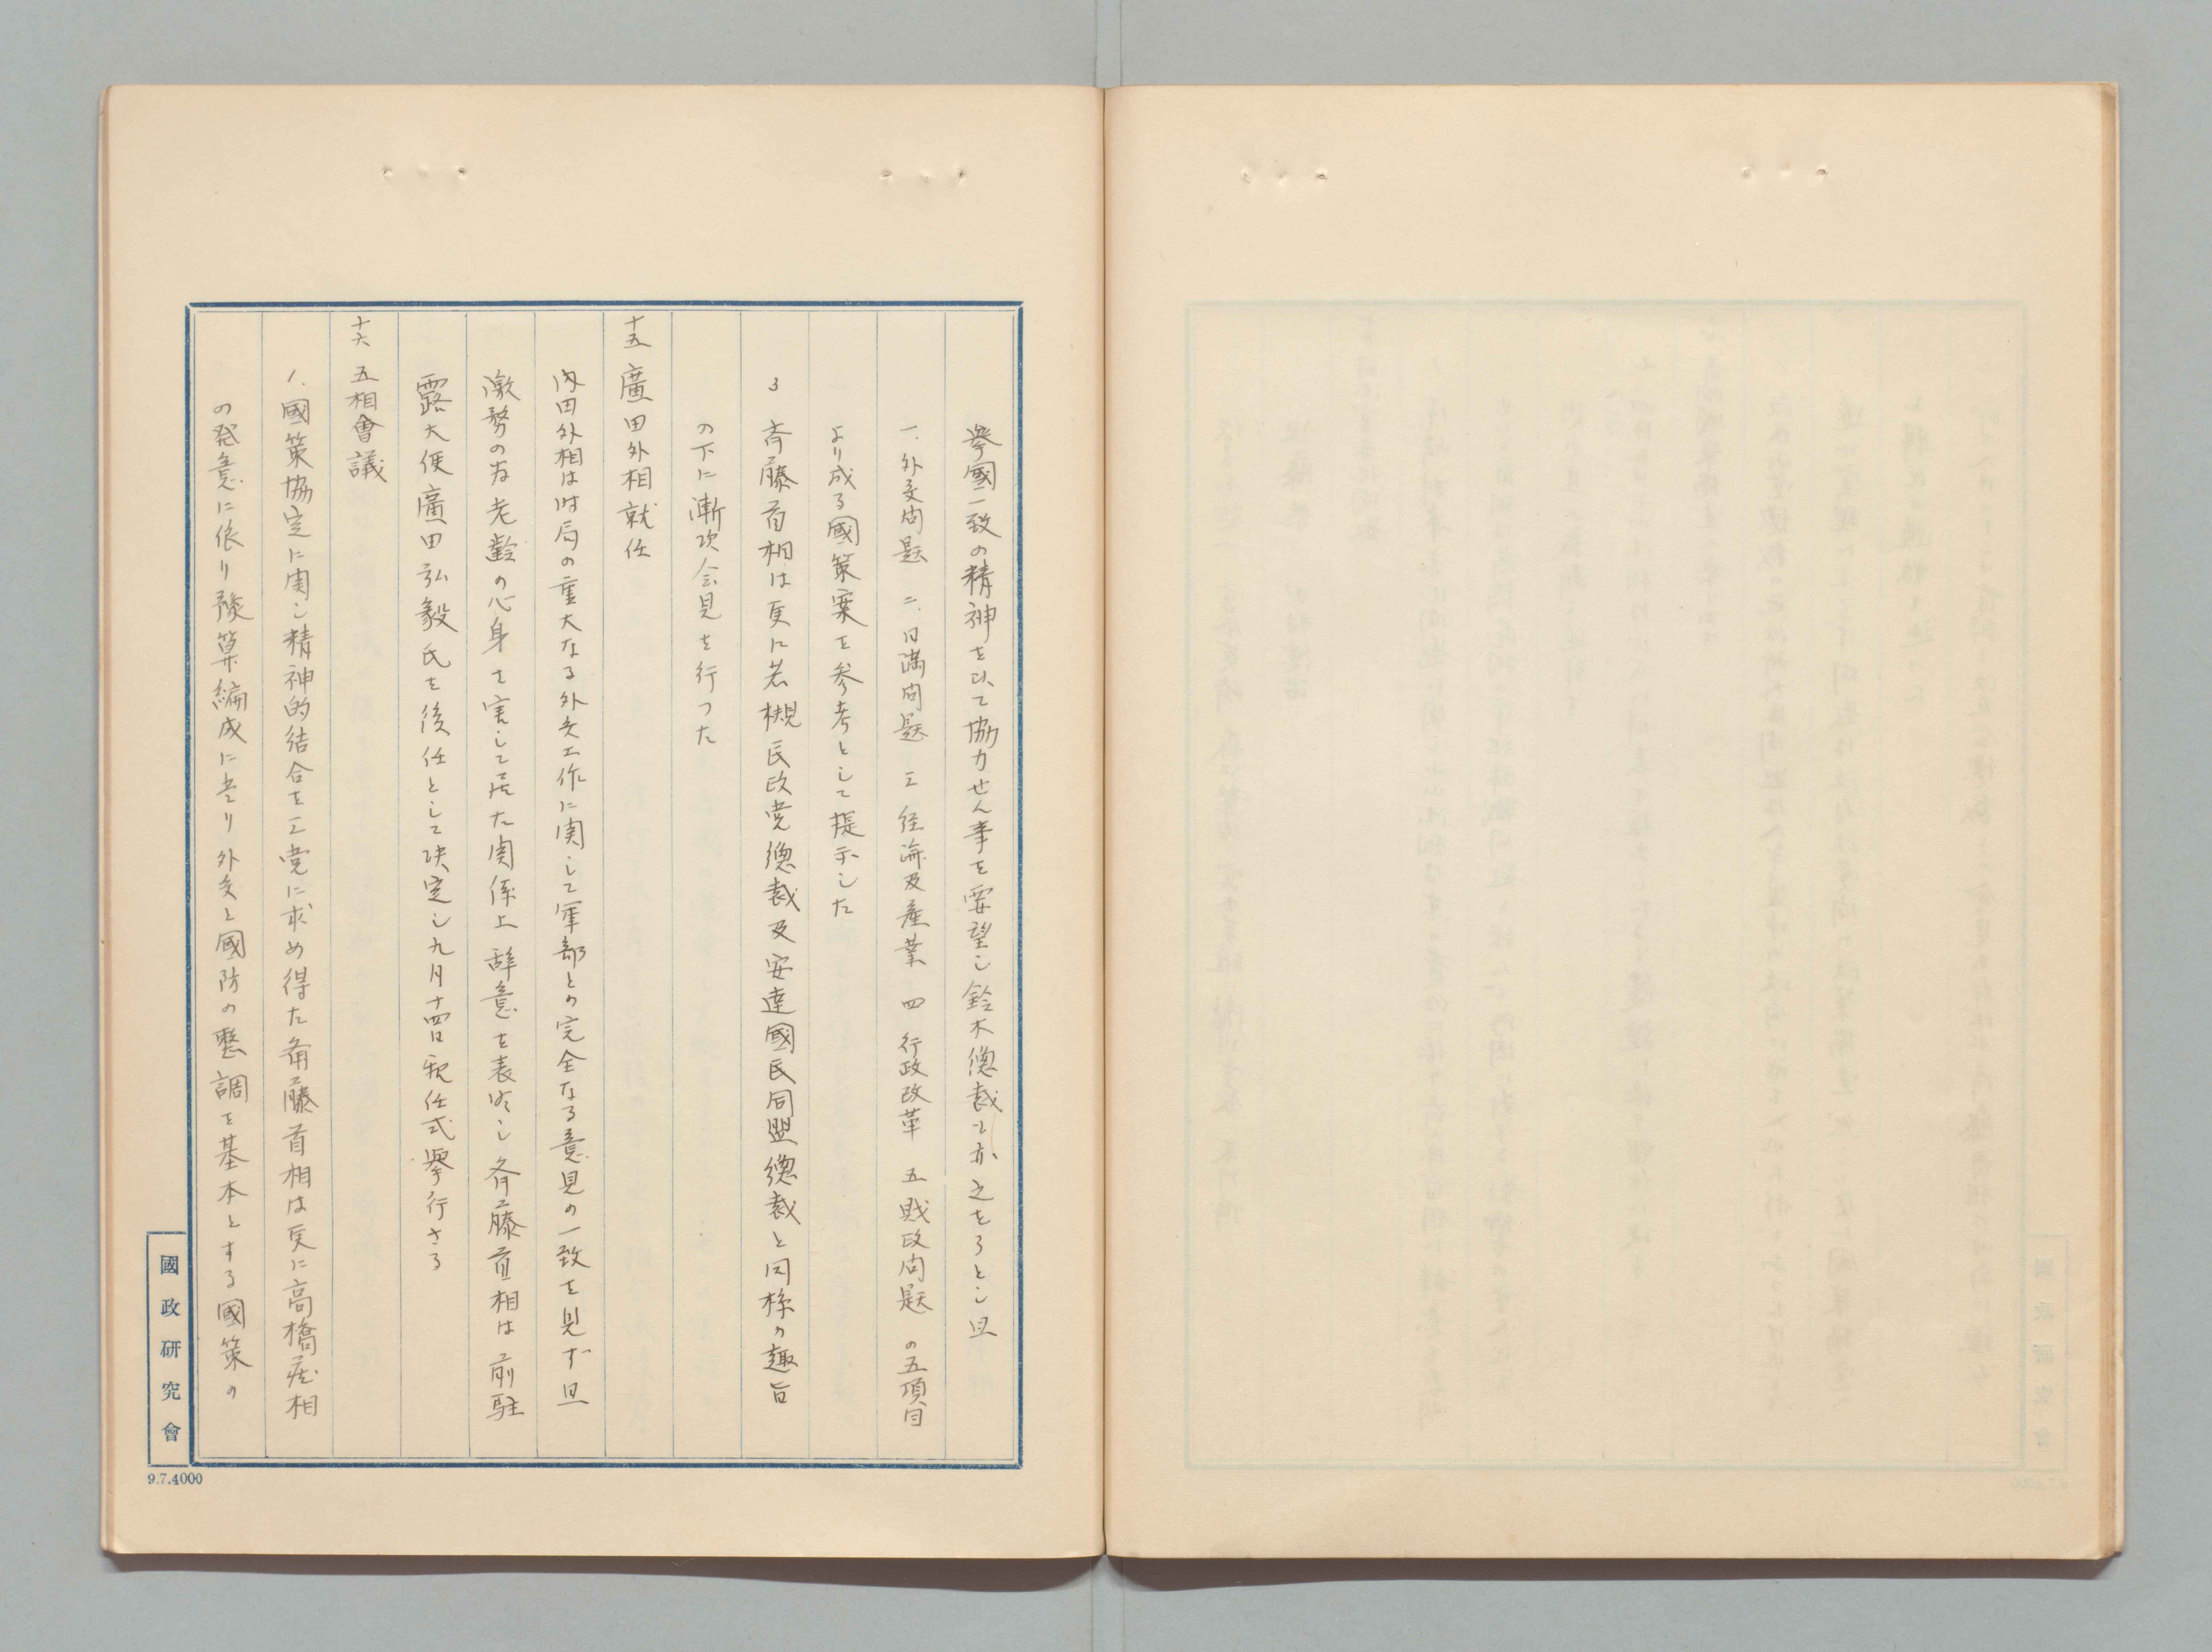 挙國一致の精神を以て協力せん事を要望し鈴木總裁も亦之を了とし且
一.外交問題 二.日満問題 三 経済及産業 四 行政改革 五 財政問題 の五項目
より成る國策案を参考として提示した
3 斉藤首相は更に若槻民政党總裁及安達國民同盟總裁と同様の趣旨
の下に漸次会見を行つた
十五 廣田外相就任
内田外相は時局の重大なる外交工作に関して軍部との完全なる意見の一致を見ず且
激務の為老齢の心身を害して居た関係上辞意を表明し斉藤首相は前駐
露大使廣田弘毅氏を後任として決定し九月十四日親任式挙行さる
十六 五相會議
1.國策協定に関し精神的結合を三党に求め得た斉藤首相は更に高橋蔵相
の発意に依り豫算編成に当り外交と國防の整調を基本とする國策の
國政研究會
9.7.4000